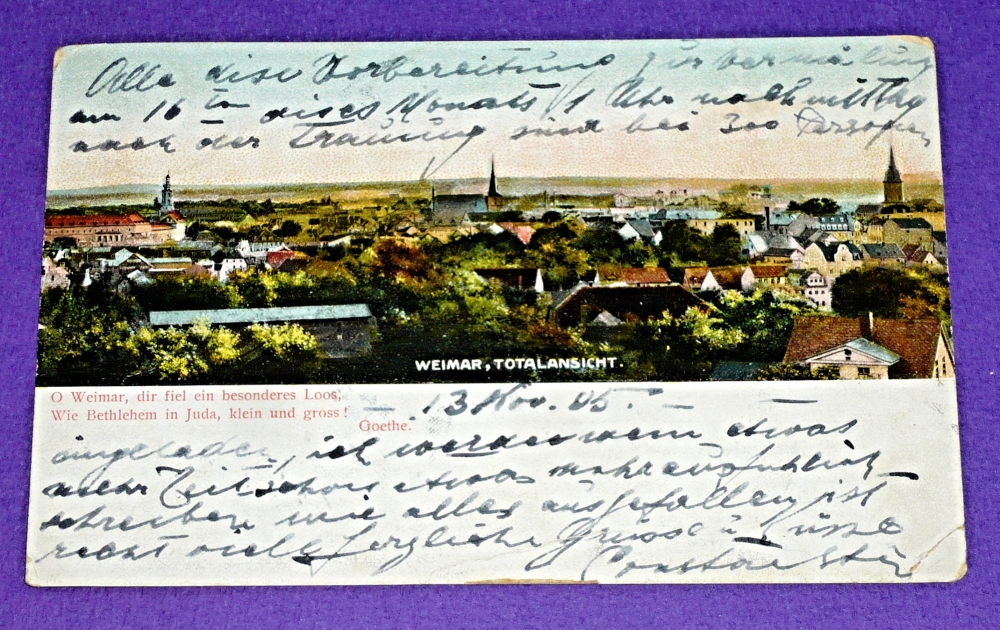 Alle dise Vorbereitung zur Vermälung
am 16 ten dises Monats 1 Uhr nachmittag
nach der Trauung sind bei 300 Personen
WEIMAR, TOTALANSICHT.
O Weimar, dir fiel ein besonderes Loos,
Wie Bethlehem in Juda, klein und gross!
Goethe.
– 13 Nov. 05. –
eingeladen, ich werde wenn etwas
mehr Zeit schon etwas mehr ausführlich
schreiben wie alles ausgefallen ist
recht viele herzliche Grüsse u Küsse